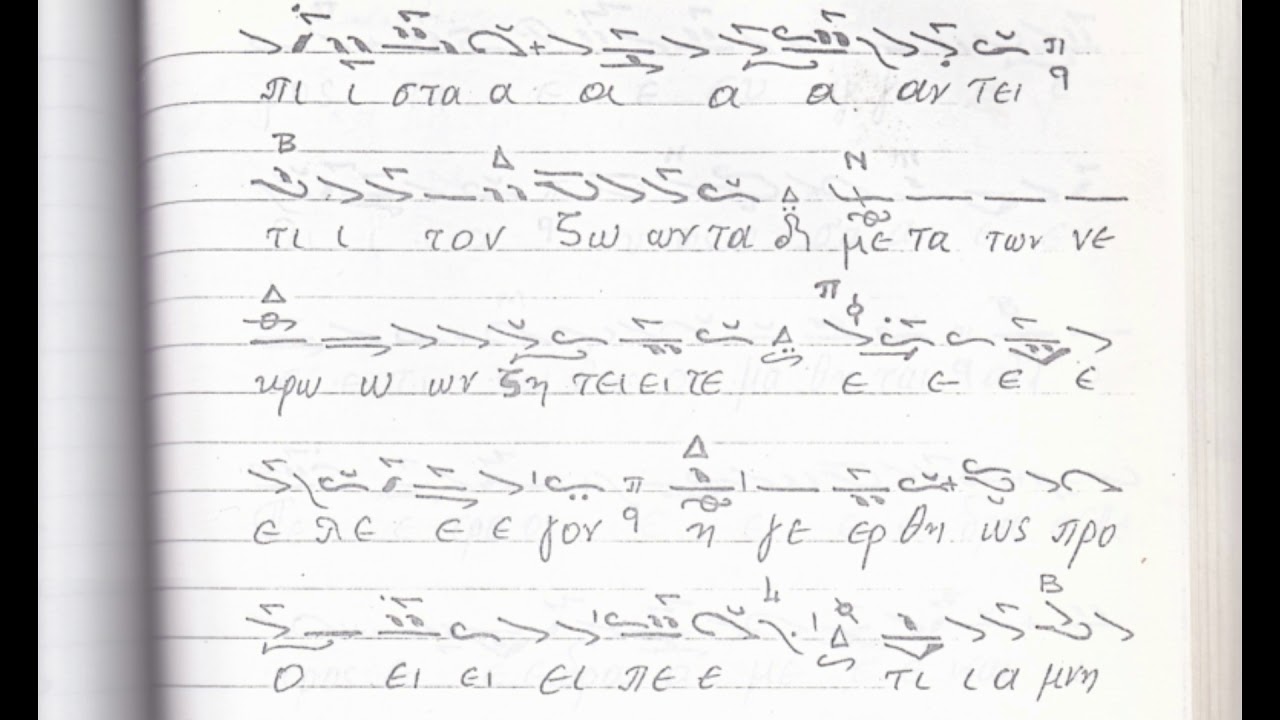 πι ι στα α α α α αν τει
τι ι τον ζω ων τα δη με τα των νε
κρω ω ων ζη τει ει τε ε ε ε ε
ε πε ε ε γον η γε ερ θη ως προ
ο ει ει ει πε ε τι ι α μνη